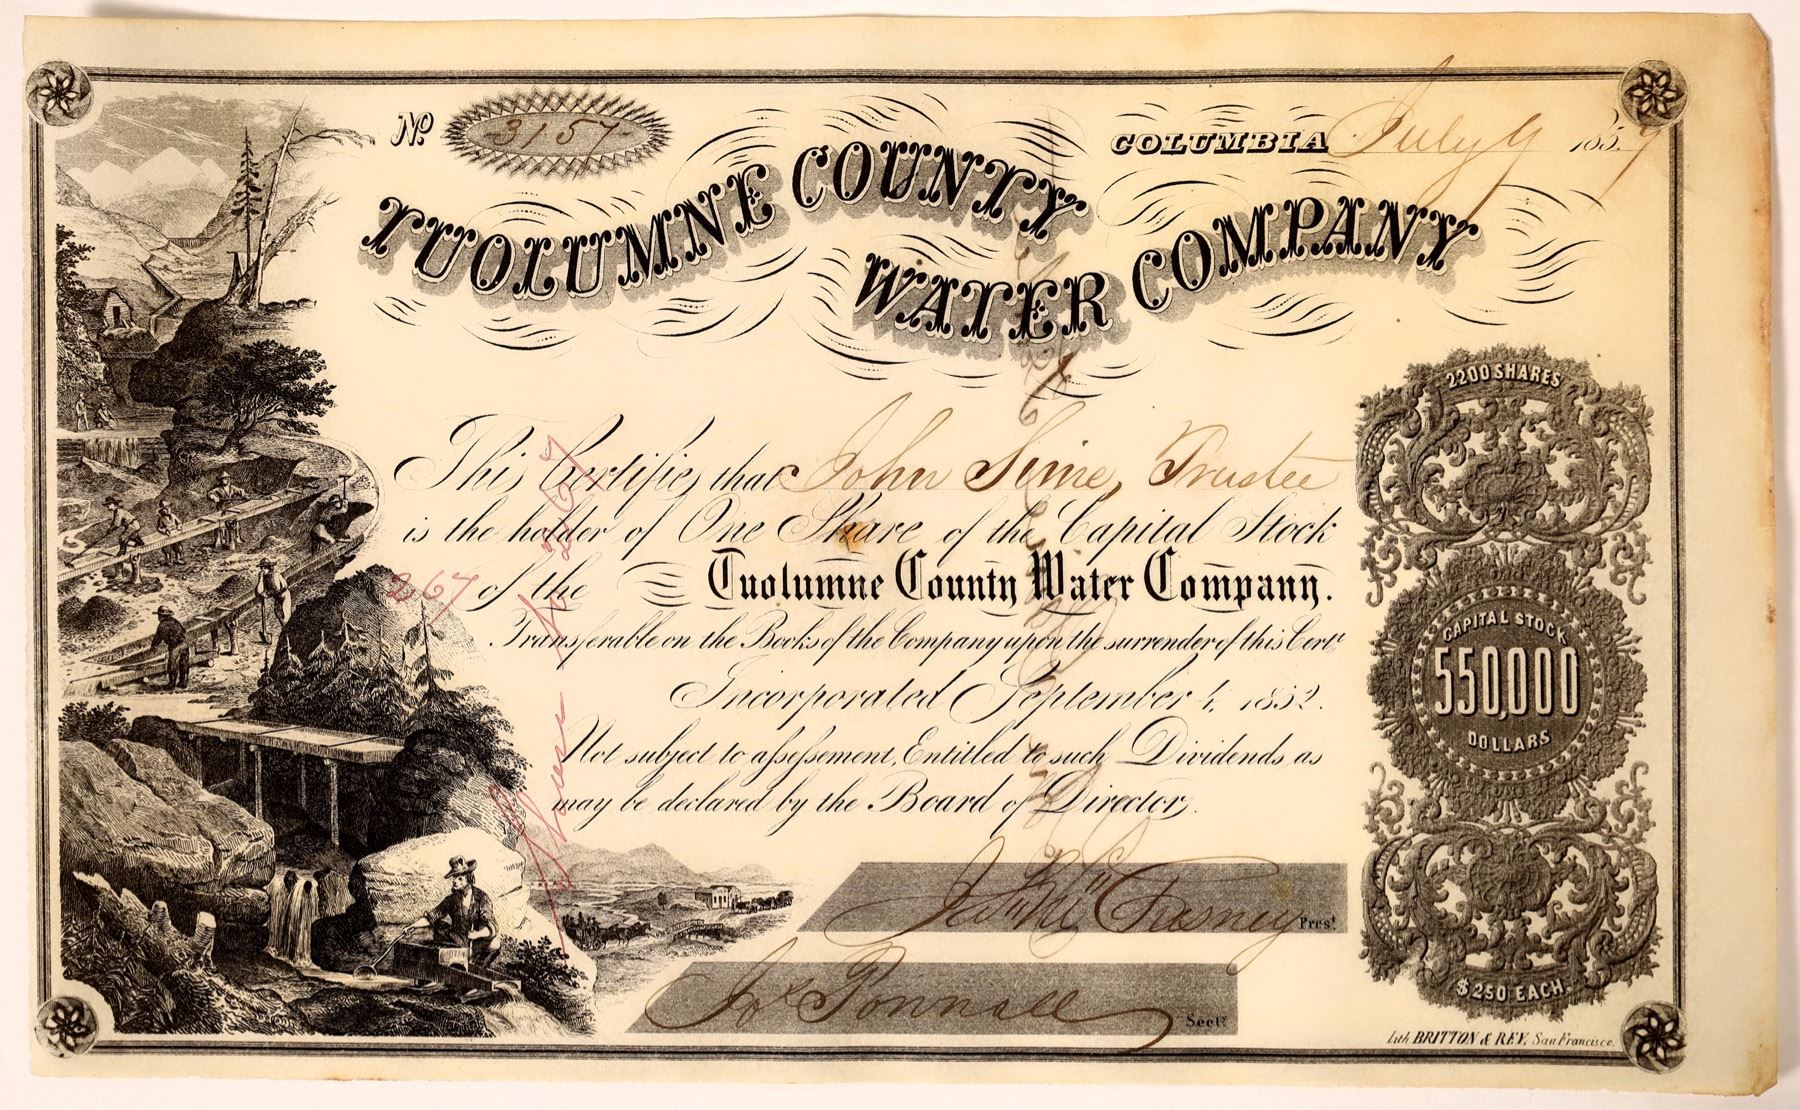 No 3157
COLUMBIA July 9 1859
TUOLUMNE COUNTY
WATER COMPANY
This Certifies that John Sime, Trustee
is the holder of One Share of the Capital Stock
267 of the Tuolumne County Water Company.
Transferable on the Books of the Company upon the surrender of this Cert.
Incorporated September 4, 1852.
Not subject to assessement, Entitled to such Dividends as
may be declared by the Board of Directors.
Prest
Jos Pownall Secty
Share No 267
2200 SHARES
CAPITAL STOCK
550,000
DOLLARS
$250 EACH.
Lith BRITTON & REY, San Francisco.